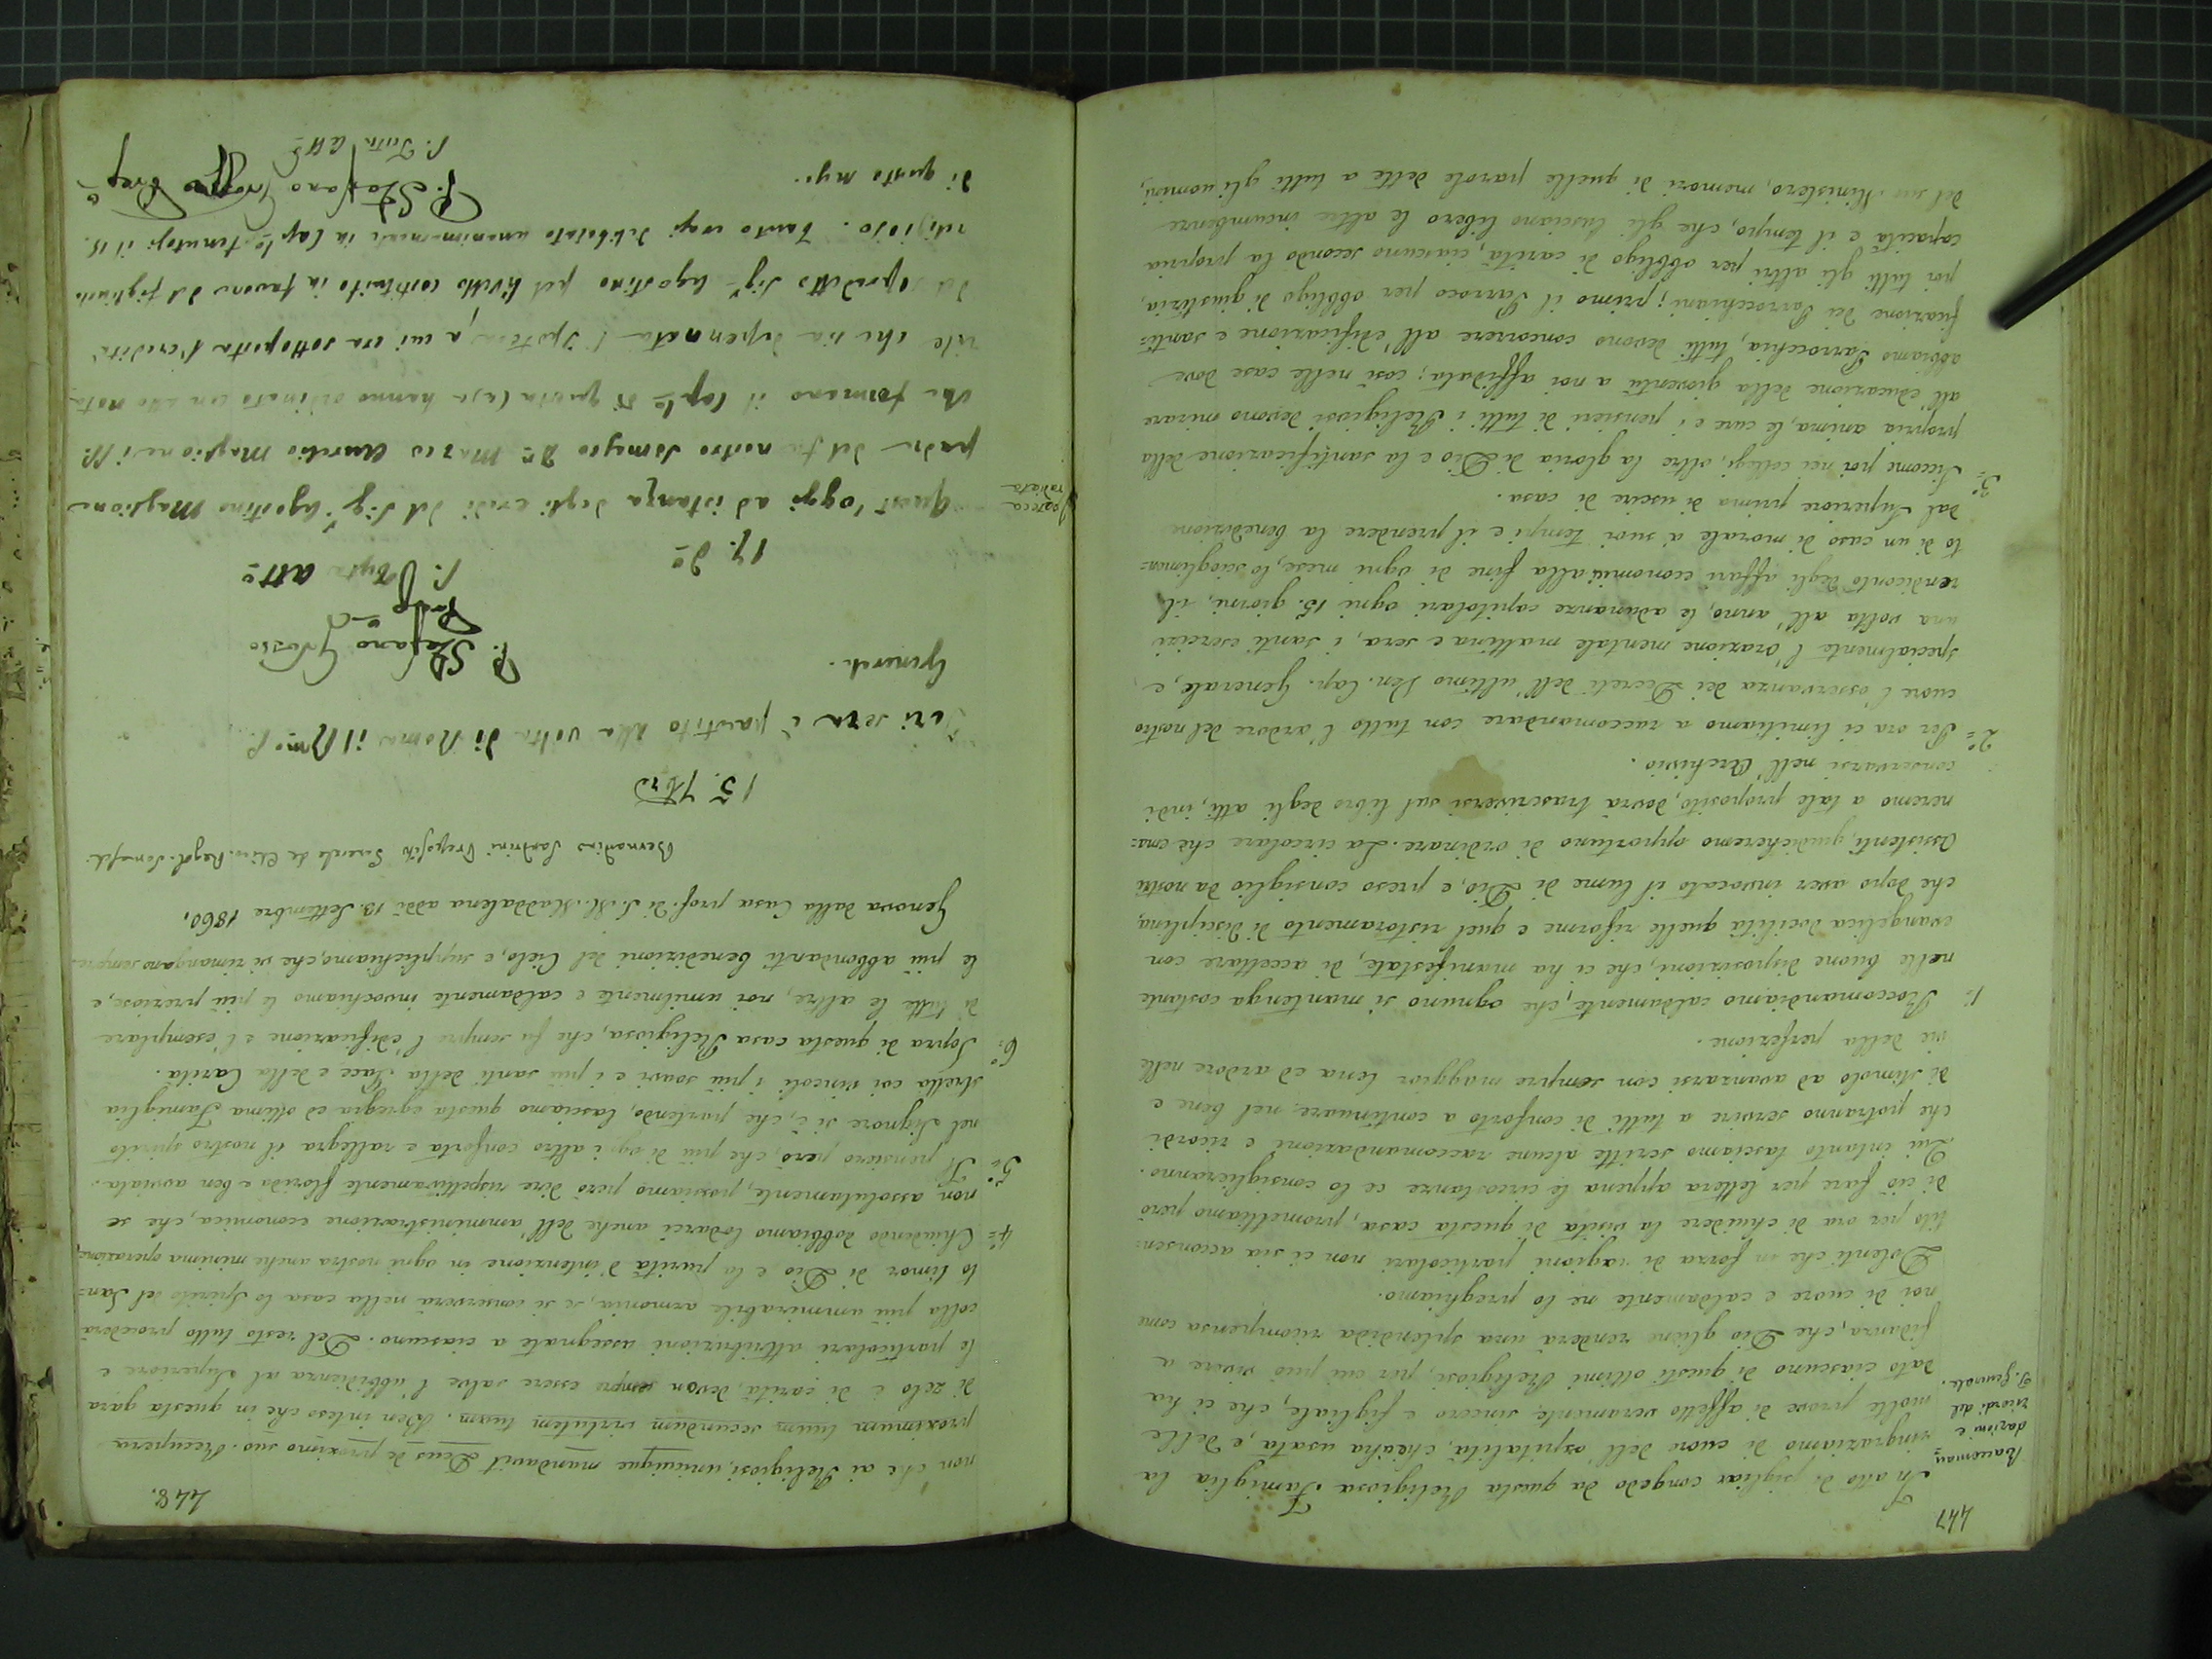 447
Raccoman
dazioni e
ricordi del
P. Generale.
In atto di pigliar congedo da questa Religiosa Famiglia la
ringraziamo di cuore dell'ospitalità, che ci ha usata, e delle
molte prove di affetto veramente sincero e figliale, che ci ha
dato ciascuno di questi ottimi Religiosi, per cui può vivere a
fidanza, che Dio gliene renderà una splendida ricompensa come
noi di cuore e caldamente ne lo preghiamo.
Dolenti che in forza di ragioni particolari non ci sia acconsen:
tito per ora di chiudere la visita di questa casa, promettiamo però
di ciò fare per lettera appena le circostanze ce lo consiglieranno.
Qui intanto lasciamo scritte alcune raccomandazioni e ricordi
che potranno servire a tutti di conforto a continuare nel bene e
di stimolo ad avanzarsi con sempre maggior lena ed ardore nelle
vie della perfezione.
1.° Raccomandiamo caldamente, che ognuno si mantenga costante
nelle buone disposizioni, che ci ha manifestate, di accettare con
evangelica docilità quelle riforme e quel ristoramento di disciplina,
che dopo aver invocato il lume di Dio, e preso consiglio da nostri
Assistenti, giudicheremo opportuno di ordinare. La circolare che ema:
neremo a tale proposito, dovrà trascriversi sul libro degli atti, indi
conservarsi nell'Archivio.
2.° Per ora ci limitiamo a raccomandare con tutto l'ardore del nostro
cuore l'osservanza dei Decreti dell'ultimo Ven. Cap. Generale, e
specialmente l'orazione mentale mattina e sera, i santi esercizi
una volta all'anno, le adunanze capitolari ogni 15. giorni, il
rendiconto degli affari economici alla fine di ogni mese, lo scioglimen:
to di un caso di morale a' suoi tempi e il prendere la benedizione
dal Superiore prima di uscire di casa.
3.° Siccome poi nei collegi, oltre la gloria di Dio e la santificazione della
propria anima, le cure e i pensieri di tutti i Religiosi devono mirare
all'educazione della gioventù a noi affidata; così nelle case dove
abbiamo Parrocchia, tutti devono concorrere all'edificazione e santi:
ficazione dei Parrocchiani; primo il Parroco per obbligo di giustizia,
poi tutti gli altri per obbligo di carità, ciascuno secondo la propria
capacità e il tempo, che gli lasciano libero le altre incumbenze
del suo Ministero, memori di quelle parole dette a tutti gli uomini,
448.
non che ai Religiosi, unicuique mandavit Deus de proximo suo. Recupera
proximum tuum secundum virtutem tuam. Ben inteso che in questa gara
di zelo e di carità, devon sempre essere salve l'ubbidienza al Superiore e
le particolari attribuzioni assegnate a ciascuno. Del resto tutto procederà
colla più ammirabile armonia, se si conserverà nella casa lo Spirito del San:
to timor di Dio e la purità d'intenzione in ogni nostra anche minima operazione.
4.° Chiudendo dobbiamo lodarci anche dell'amministrazione economica, che se
non assolutamente, possiamo però dire rispettivamente florida e ben avviata.
5.° Il pensiero però, che più di ogni altro conforta e rallegra il nostro spirito
nel Signore si è, che partendo, lasciamo questa egregia ed ottima Famiglia
stretta coi vincoli i più soavi e i più santi della Pace e della Carità.
6.° Sopra di questa casa Religiosa, che fu sempre l'edificazione e l'esemplare
di tutte le altre, noi umilmente e caldamente invochiamo le più preziose, e
le più abbondanti benedizioni del Cielo, e supplichiamo, che vi rimangano sempre.
Genova dalla Casa prof. di S. M. Maddalena addì 13. Settembre 1860,
Bernardino Sandrini Preposito Generale de' Chier. Regol. Somaschi.
15. 7bre
Ieri sera è partito alla volta di Roma il Rmo P.
Generale.
P. Stefano Grosso
Prep.to
att.o
17. d.o
Ipoteca
radiata
Quest'oggi ad istanza degli eredi del Sig.r Agostino Maglione
padre del fu nostro Somasco D.n Marco Aurelio Maglione i PP.
che formano il Cap.lo di questa Casa hanno ordinato con atto nota
rile che sia depennata l'ipoteca, a cui era sottoposta l'eredità
del sopradetto Sig.r Agostino pel livello costituito in favore del figliuolo
religioso. Tanto venne deliberato unanimemente in Cap.lo tenutosi il 15.
di questo mese.
P. Stefano Grosso Prep.o
att.o